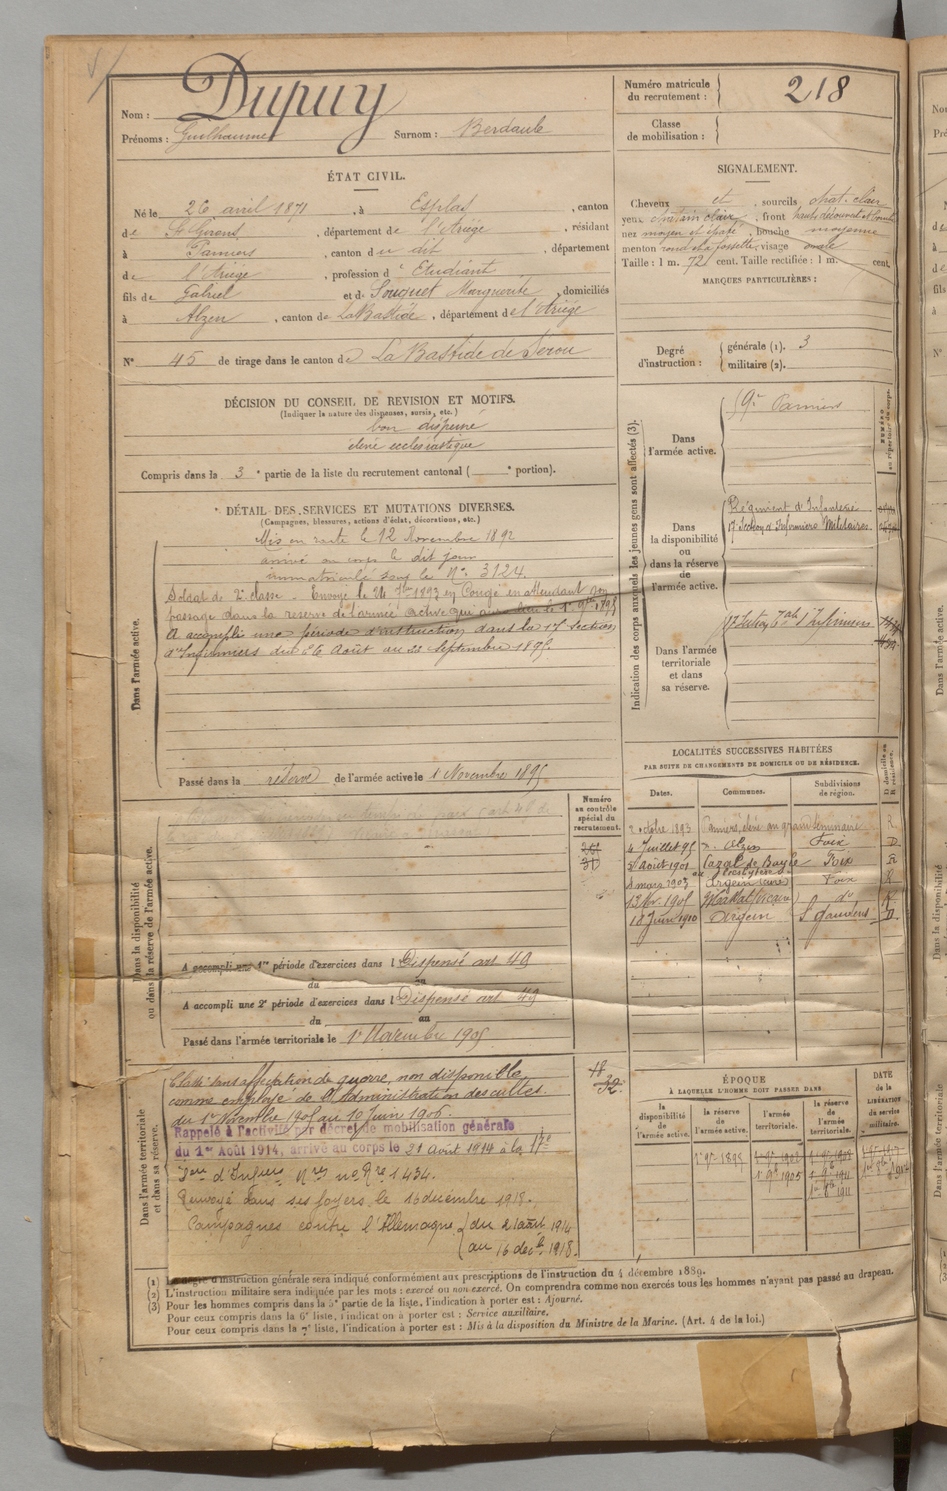 Nom : Dupuy
Prénoms : Guilhaume Surnom : Berdaule
Numéro matricule du recrutement : 218
Classe de mobilisation :
ÉTAT CIVIL.
Né le 26 avril 1871, à Esplas, canton
de St Girons, département de l'Ariège, résidant
à Pamiers, canton du dit, département
de l'Ariège, profession d' Etudiant
fils de Gabriel et de Souquet Marguerite, domiciliés
à Alzen, canton de LaBastide, département de l'Ariège
N° 45 de tirage dans le canton de La Bastide de Serou
SIGNALEMENT.
Cheveux et, sourcils chat. clair
yeux chatain clair, front haut
nez moyen et épaté, bouche moyenne
menton rond et à fossette, visage ovale
Taille : 1 m. 72 cent. Taille rectifiée : 1 m. cent.
MARQUES PARTICULIÈRES :
Degré d'instruction : générale (1). 3
militaire (2).
DÉCISION DU CONSEIL DE REVISION ET MOTIFS.
(Indiquer la nature des dispenses, sursis, etc.)
bon dispensé
élève ecclésiastique
Compris dans la 3e partie de la liste du recrutement cantonal ( e portion).
DÉTAIL DES SERVICES ET MUTATIONS DIVERSES.
(Campagnes, blessures, actions d'éclat, décorations, etc.)
Dans l'armée active.
Mis en route le 12 Novembre 1892
arrivé au corps le dit jour
immatriculé sous le N° 3124.
Soldat de 2e classe. Envoyé le 24 7bre 1893 en Congé en attendant son
passage dans la réserve de l'armée active qui aura lieu le 1er 9bre 1895
A accompli une période d'instruction dans la 17 section
d'Infirmiers du 26 Août au 22 Septembre 1895.
Passé dans la réserve de l'armée active le 1 Novembre 1895
Indication des corps auxquels les jeunes gens sont affectés (3).
NUMÉRO au répertoire du corps.
Dans l'armée active.
59e Pamiers
Dans la disponibilité ou dans la réserve de l'armée active.
Régiment d'Infanterie
17 Section d'Infirmiers Militaires
Dans l'armée territoriale et dans sa réserve.
LOCALITÉS SUCCESSIVES HABITÉES
PAR SUITE DE CHANGEMENTS DE DOMICILE OU DE RÉSIDENCE.
Dates. Communes. Subdivisions de région. D domicile ou R résidence.
2 octobre 1893 Pamiers, élève au grand séminaire R
4 Juillet 95 Alzen Foix D
5 Août 1901 Cazal de Bayle Foix
8 mars 1903 Argein Foix R
13 Nov. 1905 do R
18 Juin 1910 Argein St Gaudens D
Dans la disponibilité ou dans la réserve de l'armée active.
Numéro au contrôle spécial du recrutement.
A accompli une 1re période d'exercices dans l Dispensé art 49
du au
A accompli une 2e période d'exercices dans l Dispensé art 49
du au
Passé dans l'armée territoriale le 1er Novembre 1905
Dans l'armée territoriale et dans sa réserve.
Classé sans affectation de guerre, non disponible
comme employé de l'Administration des cultes.
du 1er Novembre 1905 au 10 Juin 1906.
Rappelé à l'activité par décret de mobilisation générale
du 1er Août 1914, arrivé au corps le 21 Août 1914 à la 17e
Son d'Infirmiers Mres no Rre 1434.
Renvoyé dans ses foyers le 16 décembre 1918.
Campagnes contre l'Allemagne du 21 août 1914
au 16 décbre 1918.
32
ÉPOQUE
À LAQUELLE L'HOMME DOIT PASSER DANS
la disponibilité de l'armée active. la réserve de l'armée active. l'armée territoriale. la réserve de l'armée territoriale.
DATE de la LIBÉRATION du service militaire.
1er 9bre 1895 1er 9bre 1905
(1) Le degré d'instruction générale sera indiqué conformément aux prescriptions de l'instruction du 4 décembre 1889.
(2) L'instruction militaire sera indiquée par les mots : exercé ou non exercé. On comprendra comme non exercés tous les hommes n'ayant pas passé au drapeau.
(3) Pour les hommes compris dans la 5e partie de la liste, l'indication à porter est : Ajourné.
Pour ceux compris dans la 6e liste, l'indication à porter est : Service auxiliaire.
Pour ceux compris dans la 7e liste, l'indication à porter est : Mis à la disposition du Ministre de la Marine. (Art. 4 de la loi.)